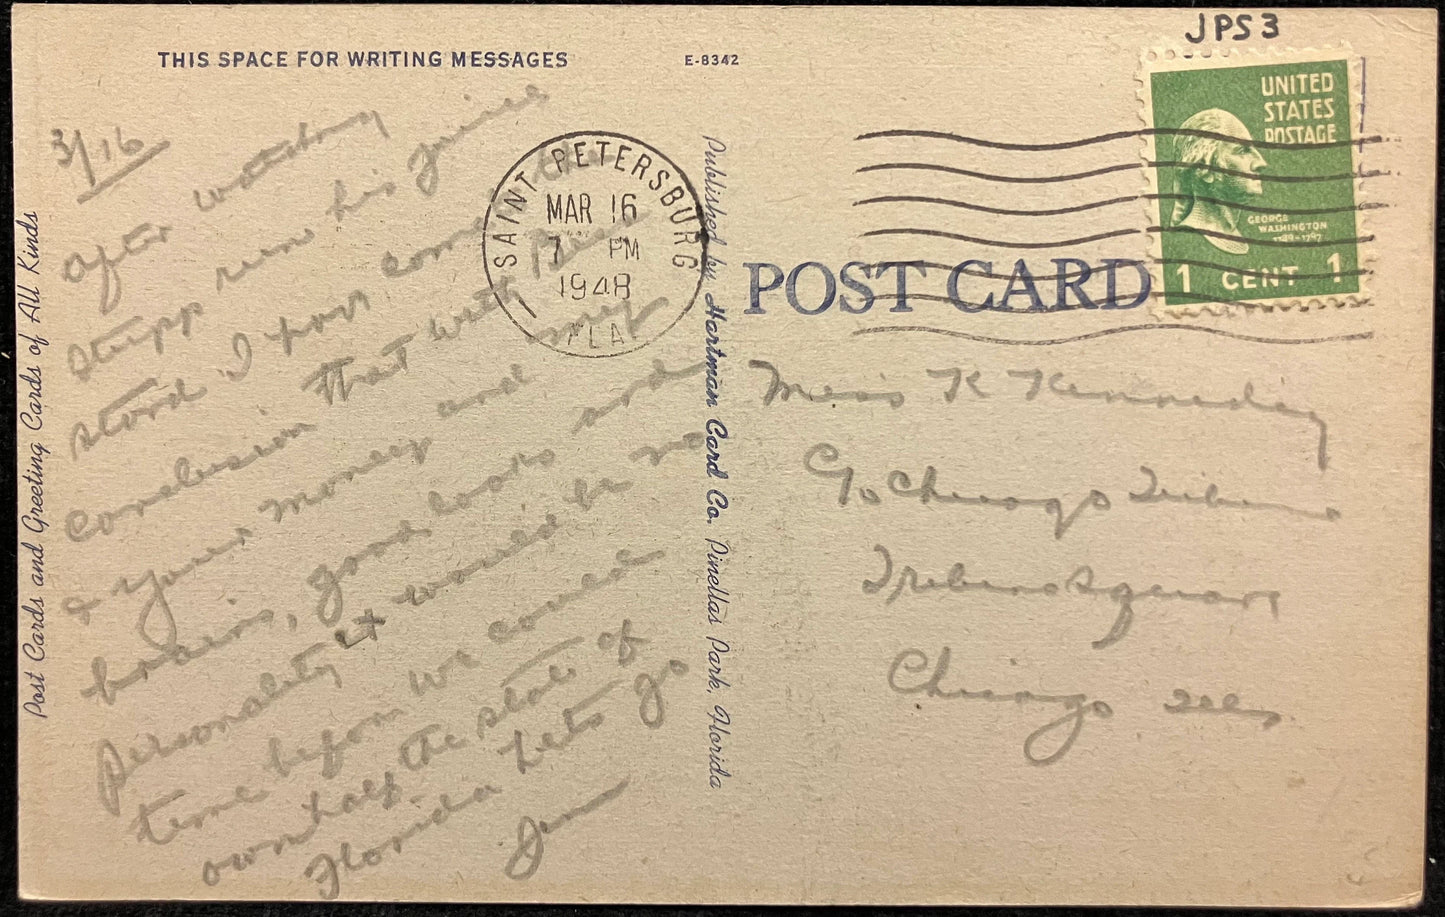 JPS3
THIS SPACE FOR WRITING MESSAGES
E-8342
UNITED
STATES
POSTAGE
GEORGE
WASHINGTON
1789-1797
1 CENT 1
SAINT PETERSBURG
MAR 16
7 PM
1948
FLA.
POST CARD
3/16
after watching
stupp run his juice
stord I hav come to the
conclusion that with Bees
& your money and my
brains, good looks and
personality it would be no
time befor we could
own half the state of
Florida Lets go
Jim
Miss K Kennedy
C/o Chicago Tribune
Tribune Square
Chicago Ills
Post Cards and Greeting Cards of All Kinds
Published by Hartman Card Co. Pinellas Park, Florida